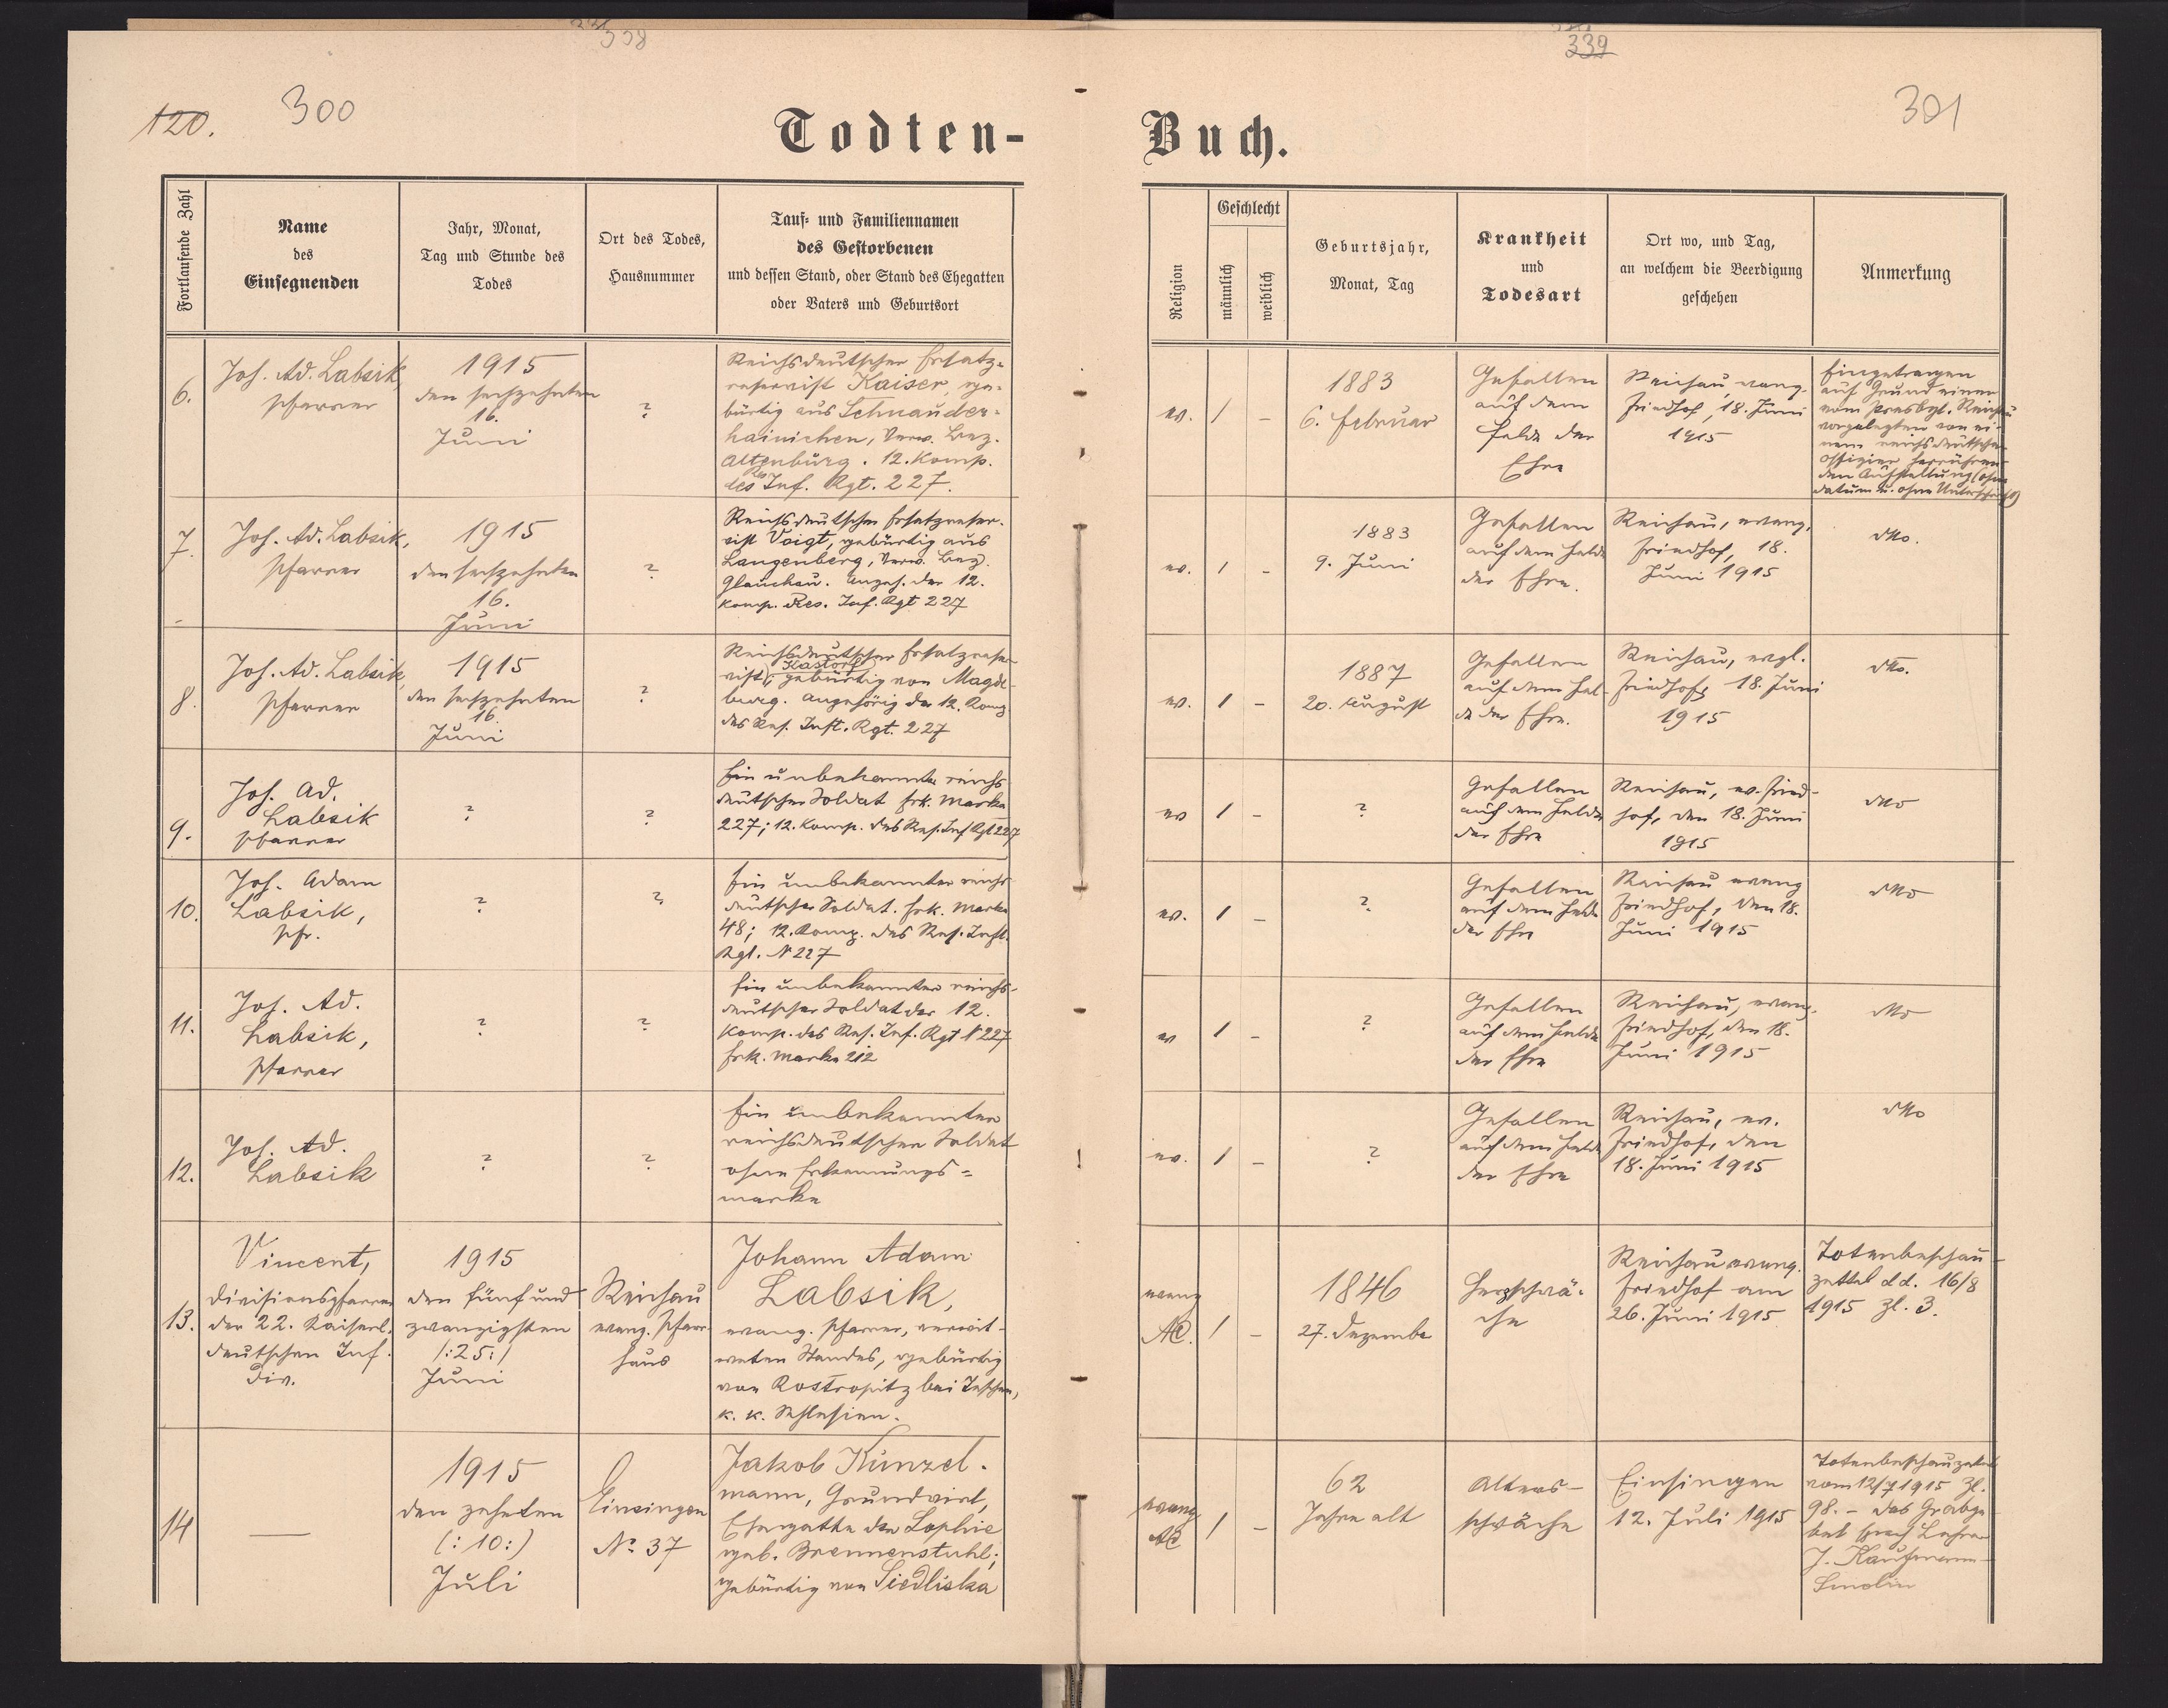 338
339
120.
300
301
Todten-
Buch.
Fortlaufende Zahl
Name
des
Einsegnenden
Jahr, Monat,
Tag und Stunde des
Todes
Ort des Todes,
Hausnummer
Tauf- und Familiennamen
des Gestorbenen
und dessen Stand, oder Stand des Ehegatten
oder Vaters und Geburtsort
Religion
Geschlecht
männlich
weiblich
Geburtsjahr,
Monat, Tag
Krankheit
und
Todesart
Ort wo, und Tag,
an welchem die Beerdigung
geschehen
Anmerkung
6.
Joh. Ad. Labsik,
Pfarrer
1915
den sechzehnten
16.
Juni
?
Reichsdeutscher Ersatz-
reservist Kaiser, ge-
bürtig aus Schnauder-
hainichen, Verw. Bez.
Altenburg. 12. Komp.
des Res Inf. Rgt. 227.
ev.
1
-
1883
6. Februar
Gefallen
auf dem
Felde der
Ehre
Reichau, evang.
Friedhof, 18. Juni
1915
Eingetragen
auf Grund einer
vom Presbyt. Reichau
vorgelegten von ei-
nem reichsdeutschen
Offizier herrühren-
den Aufstellung (ohne
Datum u. ohne Unterschrift)
7.
Joh. Ad. Labsik,
Pfarrer
1915
den sechzehnten
16.
Juni
?
Reichsdeutscher Ersatzreser-
vist Voigt, gebürtig aus
Langenberg, Verw. Bez.
Glauchau. Angeh. der 12.
Komp. Res. Inf. Rgt 227
ev.
1
-
1883
9. Juni
Gefallen
auf dem Felde
der Ehre.
Reichau, evang.
Friedhof, 18.
Juni 1915
dto.
8.
Joh. Ad. Labsik,
Pfarrer
1915
den sechzehnten
16.
Juni
?
Reichsdeutscher Ersatzreser-
Kastorf
vist, gebürtig von Magde-
burg. Angehörig der 12. Komp
des Res. Inft. Rgt. 227
ev.
1
-
1887
20. August
Gefallen
auf dem Fel-
de der Ehre.
Reichau, evgl.
Friedhof, 18. Juni
1915
dto.
9.
Joh. Ad.
Labsik
Pfarrer
?
?
Ein unbekannter reichs
deutscher Soldat Erk. Marke
227; 12. Komp. des Res. Inf Rgt 227
ev
1
-
?
Gefallen
auf dem Felde
der Ehre
Reichau, ev. Fried-
hof, den 18. Juni
1915
dto
10.
Joh. Adam
Labsik,
Pfr.
?
?
Ein unbekannter reichs-
deutscher Soldat. Erk. Marke
48; 12. Komp. des Res. Inft.
Rgt. N 227
ev.
1
-
?
Gefallen
auf dem Felde
der Ehre
Reichau evang
Friedhof, den 18.
Juni 1915
dto
11.
Joh. Ad.
Labsik,
Pfarrer
?
?
Ein unbekannter reichs-
deutscher Soldat der 12.
Komp. des Res. Inf. Rgt N 227
Erk. Marke 212
ev
1
-
?
Gefallen
auf dem Felde
der Ehre
Reichau, evang.
Friedhof, den 18.
Juni 1915
dto
12.
Joh. Ad.
Labsik
?
?
Ein unbekannter
reichsdeutscher Soldat
ohne Erkennungs-
marke
ev.
1
-
?
Gefallen
auf dem Felde
der Ehre
Reichau, ev.
Friedhof, den
18. Juni 1915
dto
13.
Vincent,
Divisionspfarrer
der 22. Kaiserl.
deutschen Inf.
Div.
1915
den fünf und
zwanzigsten
/:25:/
Juni
Reichau
evang. Pfarr-
haus
Johann Adam
Labsik,
evang. Pfarrer, verwit-
weten Standes, gebürtig
von Rostropitz bei Teschen,
k. k. Schlesien.
evang
AC.
1
-
1846
27. Dezember
Herzschwä-
che
Reichau evang.
Friedhof am
26. Juni 1915
Totenbeschau-
zettel dd. 16/8
1915 Zl. 3.
14
—
1915
den zehnten
(:10:)
Juli
Einsingen
No. 37
Jakob Künzel-
mann, Grundwirt,
Ehegatte der Sophie
geb. Brennenstuhl;
gebürtig von Siedliska
evang
AC
1
-
62
Jahre alt
Alters-
schwäche
Einsingen
12. Juli 1915
Totenbeschauzettel
vom 12/7 1915 Zl.
98. - Das Grabge-
bet sprach Lehrer
J. Kaufmann-
Smolin